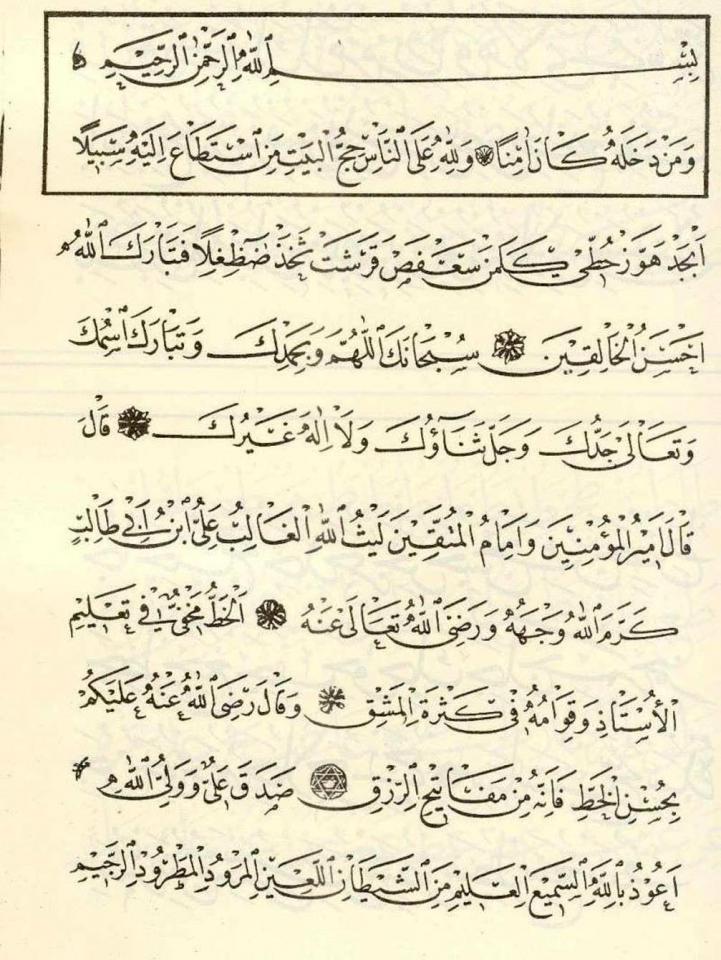 بِسْمِ اللّٰهِ الرَّحْمٰنِ الرَّحِيمِ
وَمَنْ دَخَلَهُ كَانَ اٰمِنًا وَلِلّٰهِ عَلَى النَّاسِ حِجُّ الْبَيْتِ مَنِ اسْتَطَاعَ اِلَيْهِ سَبِيلًا
اَبْجَدْ هَوَّزْ حُطِّي كَلَمَنْ سَعْفَصْ قَرَشَتْ ثَخَذْ ضَظِغْلًا فَتَبَارَكَ اللّٰهُ
اَحْسَنُ الْخَالِقِينَ سُبْحَانَكَ اللّٰهُمَّ وَبِحَمْدِكَ وَتَبَارَكَ اسْمُكَ
وَتَعَالَى جَدُّكَ وَجَلَّ ثَنَاؤُكَ وَلَا اِلٰهَ غَيْرُكَ قَالَ
قَالَ اَمِيرُ الْمُؤْمِنِينَ وَاِمَامُ الْمُتَّقِينَ لَيْثُ اللّٰهِ الْغَالِبُ عَلِيُّ ابْنُ اَبِي طَالِبٍ
كَرَّمَ اللّٰهُ وَجْهَهُ وَرَضِيَ اللّٰهُ تَعَالَى عَنْهُ اَلْخَطُّ مَخْفِيٌّ فِي تَعْلِيمِ
الْاُسْتَاذِ وَقِوَامُهُ فِي كَثْرَةِ الْمَشْقِ وَقَالَ رَضِيَ اللّٰهُ عَنْهُ عَلَيْكُمْ
بِحُسْنِ الْخَطِّ فَاِنَّهُ مِنْ مَفَاتِيحِ الرِّزْقِ صَدَقَ عَلِيٌّ وَوَلِيُّ اللّٰهِ
اَعُوذُ بِاللّٰهِ السَّمِيعِ الْعَلِيمِ مِنَ الشَّيْطَانِ اللَّعِينِ الْمَرُودِ الْمَطْرُودِ الرَّجِيمِ